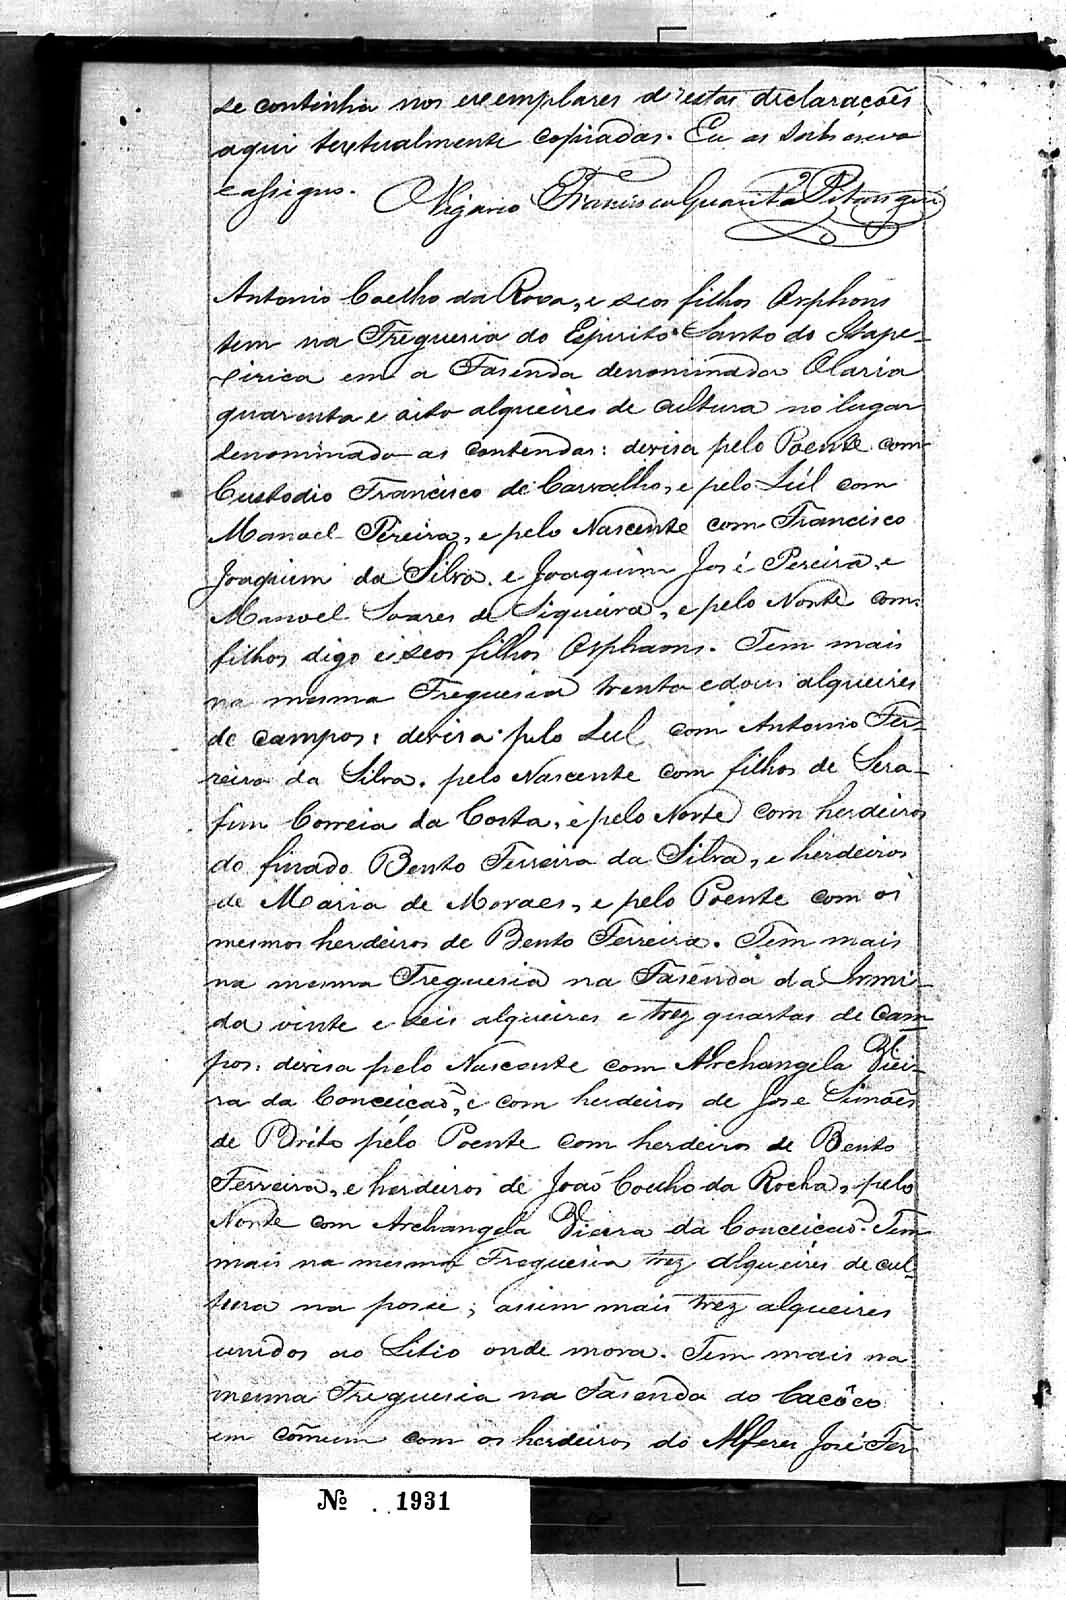 se continha nos exemplares d'estas declaraçoẽs
aqui textualmente copiadas. Eu as subscrevo
e assigno. Vigario Francisco Guarita Pitangui
Antonio Coelho da Roxa, e seos filhos Orphons
tem na Freguesia do Espirito Santo do Itape-
cirica em a Fasenda denominada Olaria
quarenta e oito alqueires de cultura no lugar
denominado as contendas: devisa pelo Poente com
Custodio Francisco de Carvalho, e pelo Sul com
Manoel Pereira, e pelo Nascente com Francisco
Joaquim da Silva, e Joaquim José Pereira, e
Manoel Soares de Siqueira, e pelo Norte com
filhos digo e seos filhos Orphaons. Tem mais
na mesma Freguesia trenta e dous alqueires
de campos: devisa pelo Sul com Antonio Fer-
reira da Silva. pelo Nascente com filhos de Sera-
fim Correia da Costa, e pelo Norte com herdeiros
do finado Bento Ferreira da Silva, e herdeiros
de Maria de Moraes, e pelo Poente com os
mesmos herdeiros de Bento Ferreira. Tem mais
na mesma Freguesia na Fasenda da Irmi-
da vinte e seis alqueires e trez quartas de Cam
pos: devisa pelo Nascente com Archangela Viei-
ra da Conceicaõ, e com herdeiros de Jose Simoẽs
de Brito pelo Poente com herdeiros de Bento
Ferreira, e herdeiros de Joaõ Coelho da Rocha, pelo
Norte com Archangela Vieira da Conceicaõ. Tem
mais na mesma Freguesia trez alqueires de cul-
tura na posse; assim mais trez alqueires
unidos ao Sitio onde mora. Tem mais na
mesma Freguesia na Fasenda do Cacôco
em cõmum com os herdeiros do Alferes José Fer
Nº 1931